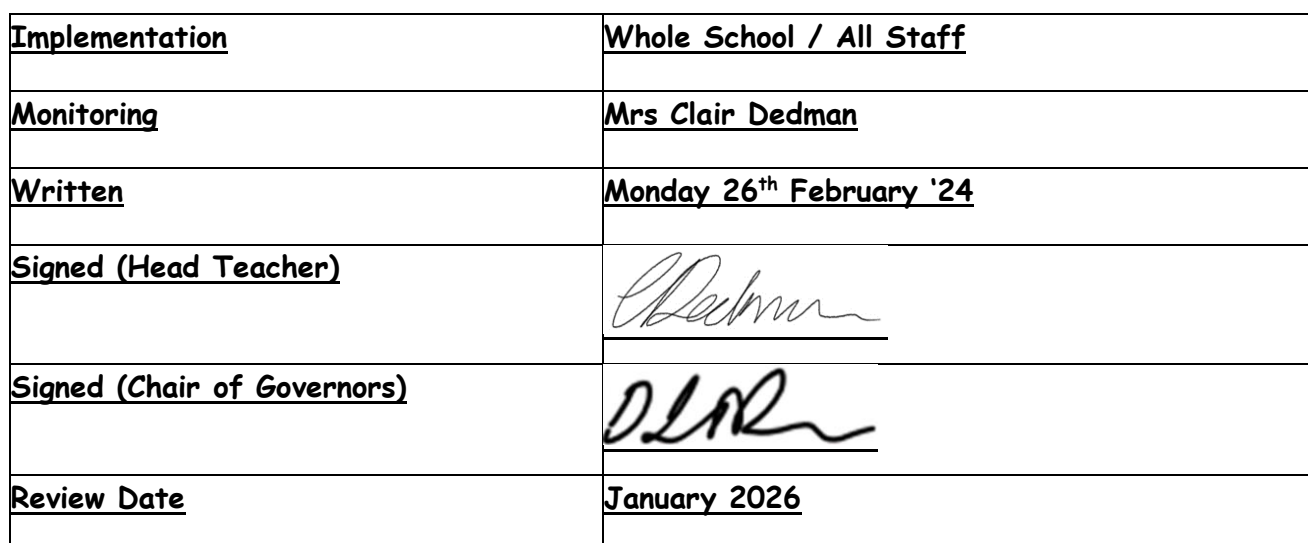 Implementation Whole School / All Staff
Monitoring Mrs Clair Dedman
Written Monday 26th February ‘24
Signed (Head Teacher) CDedman
Signed (Chair of Governors)
Review Date January 2026